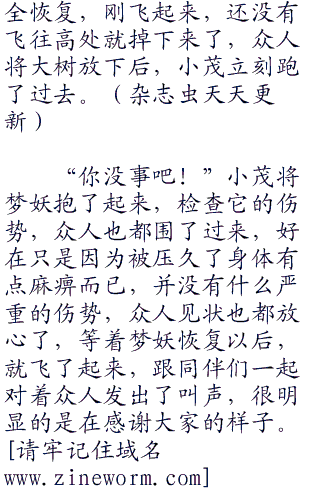 全恢复，刚飞起来，还没有
飞往高处就掉下来了，众人
将大树放下后，小茂立刻跑
了过去。（杂志虫天天更
新）
“你没事吧！”小茂将
梦妖抱了起来，检查它的伤
势，众人也都围了过来，好
在只是因为被压久了身体有
点麻痹而已，并没有什么严
重的伤势，众人见状也都放
心了，等着梦妖恢复以后，
就飞了起来，跟同伴们一起
对着众人发出了叫声，很明
显的是在感谢大家的样子。
[请牢记住域名
www.zineworm.com]